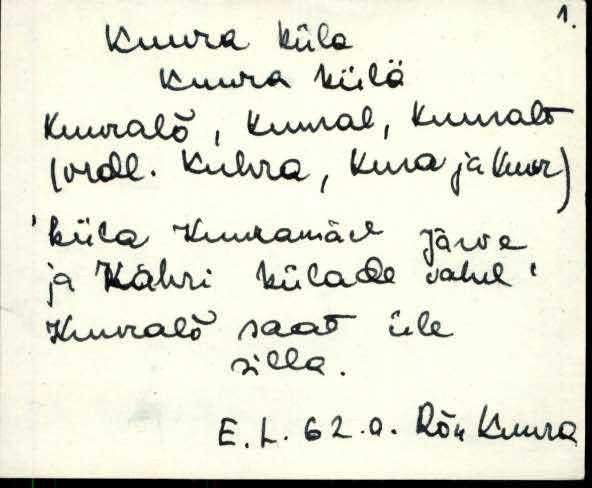 1.
Kuura küla
Kuura külä
Kuuralõ, Kuural, Kuuralt
(vrdl. Kuhra, Kura ja Kuur)
'küla Kuuramäe Järve
ja Kähri külade vahel'
Kuuralõ saat üle
silla.
E. L. 62.a. Rõu Kuura